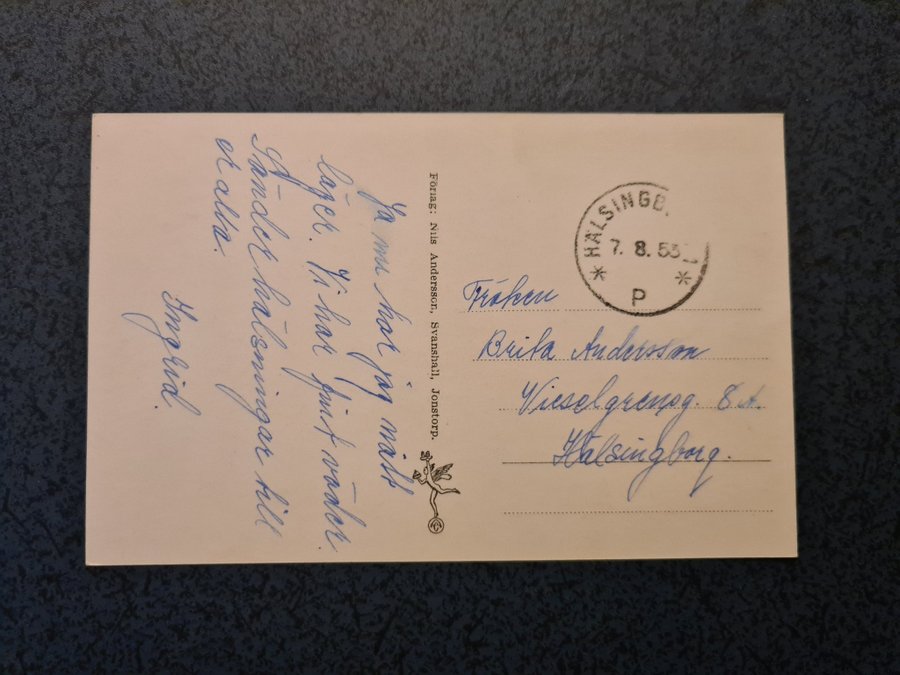 Ja nu har jag nått
läger. Vi har fint väder.
Sänder hälsningar till
er alla.
Ingrid.
Förlag: Nils Andersson, Svanshall, Jonstorp.
HÄLSINGB
7. 8. 55
P
Fröken
Brita Andersson
Vieselgrensg. 8 A.
Hälsingborg.